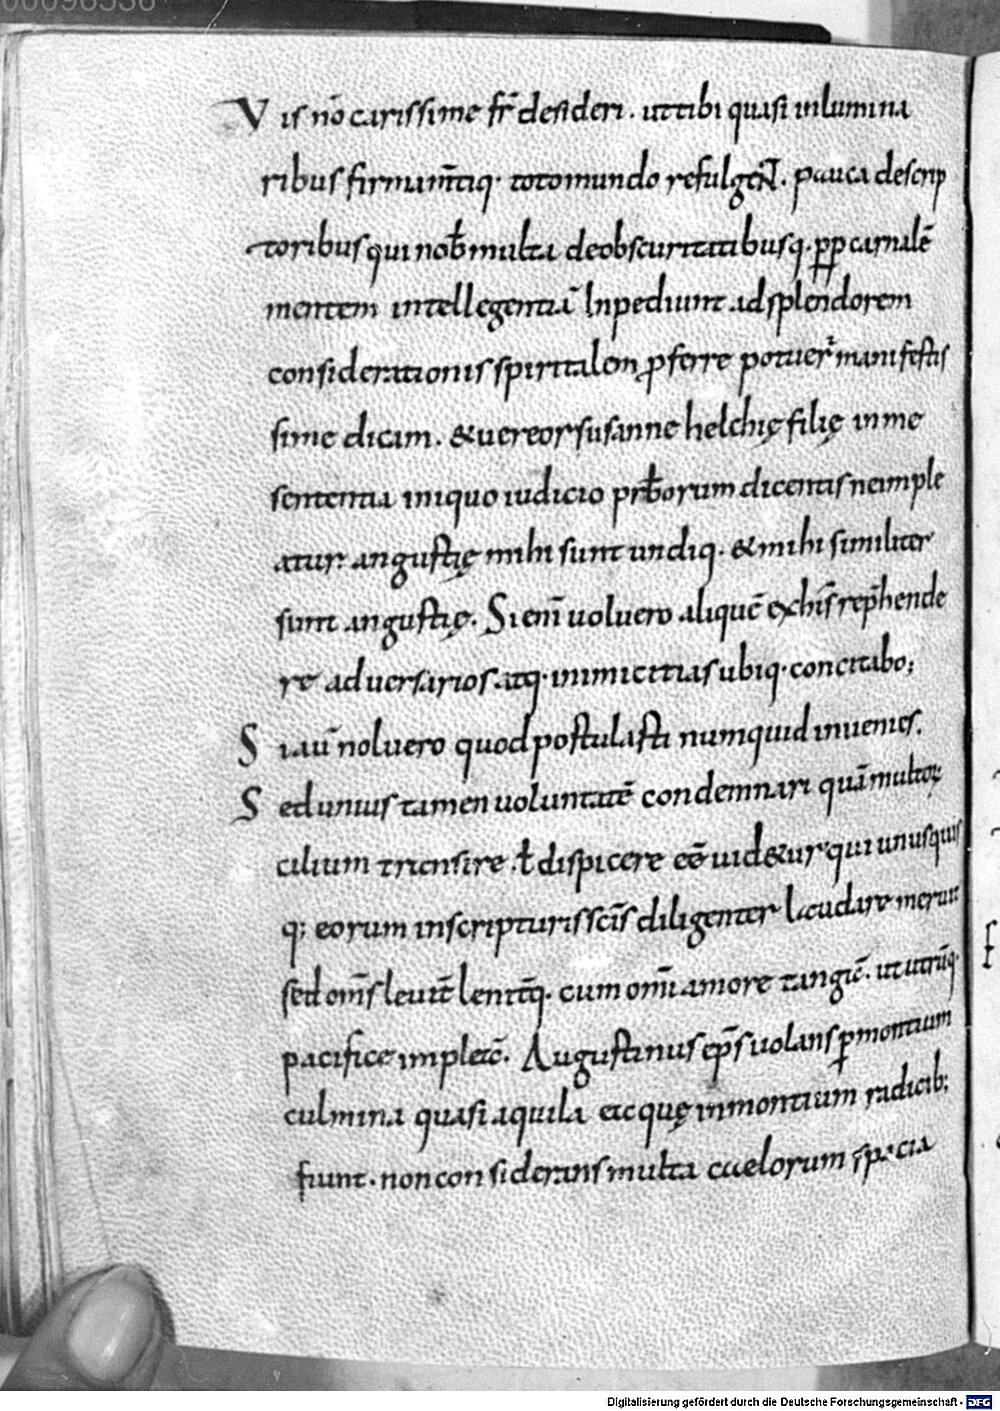 00096538
Vis nō carissime fr̄ desideri. ut tibi quasi in lumina
ribus firmam̄tiq· toto mundo refulgeN̄. pauca descrip
toribus qui nob̄ multa de obscuritatibusq. ꝓp carnalē
mentem intellegentiā Inpediunt ad splendorem
considerationis spiritalem ꝓferre potuer̄ manifestis
sime dicam. & uereor susanne helchię filię in me
sententia iniquo iudicio prb̄orum dicentis ne imple
atur. angustię mihi sunt undiq. & mihi similiter
sunt angustię. Si enī uoluero aliquē ex his̄ rep̄hende
re aduersarios atq· inimicitias ubiq· concitabo;
Si aū noluero quod postulasti numquid inuenies.
Sed unius tamen uoluntatē condemnari quā multoꝝ
cilium transire .ł dispicere eē uid&ur qui unusquis
q; eorum in scripturis sc̄is diligenter laudare meruit
sed om̄s leuit̄ lenit̄q. cum om̄i amore tangit̄. ut utrūq·
pacifice impleat̄. Augustinus ep̄s uolans ꝑ montium
culmina quasi aquila et ac quę in montium radicib;
fiunt. non considerans multa caelorum spacia
Digitalisierung gefördert durch die Deutsche Forschungsgemeinschaft - DFG